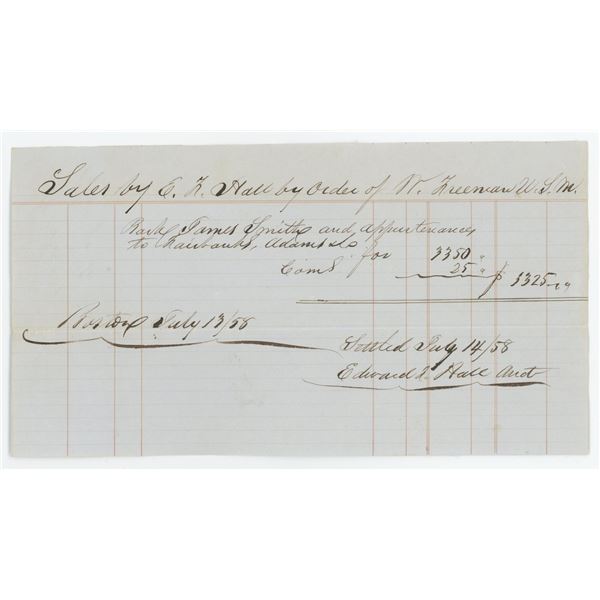 Sales by E. F. Hall by order of W. Freeman U.S.M.
Bark James Smith and appurtenances
to Fairbanks, Adams & Co for 3350 "
Coms 25 " $ 3325 " "
Boston July 13/58
Settled July 14/58
Edward F. Hall Auct